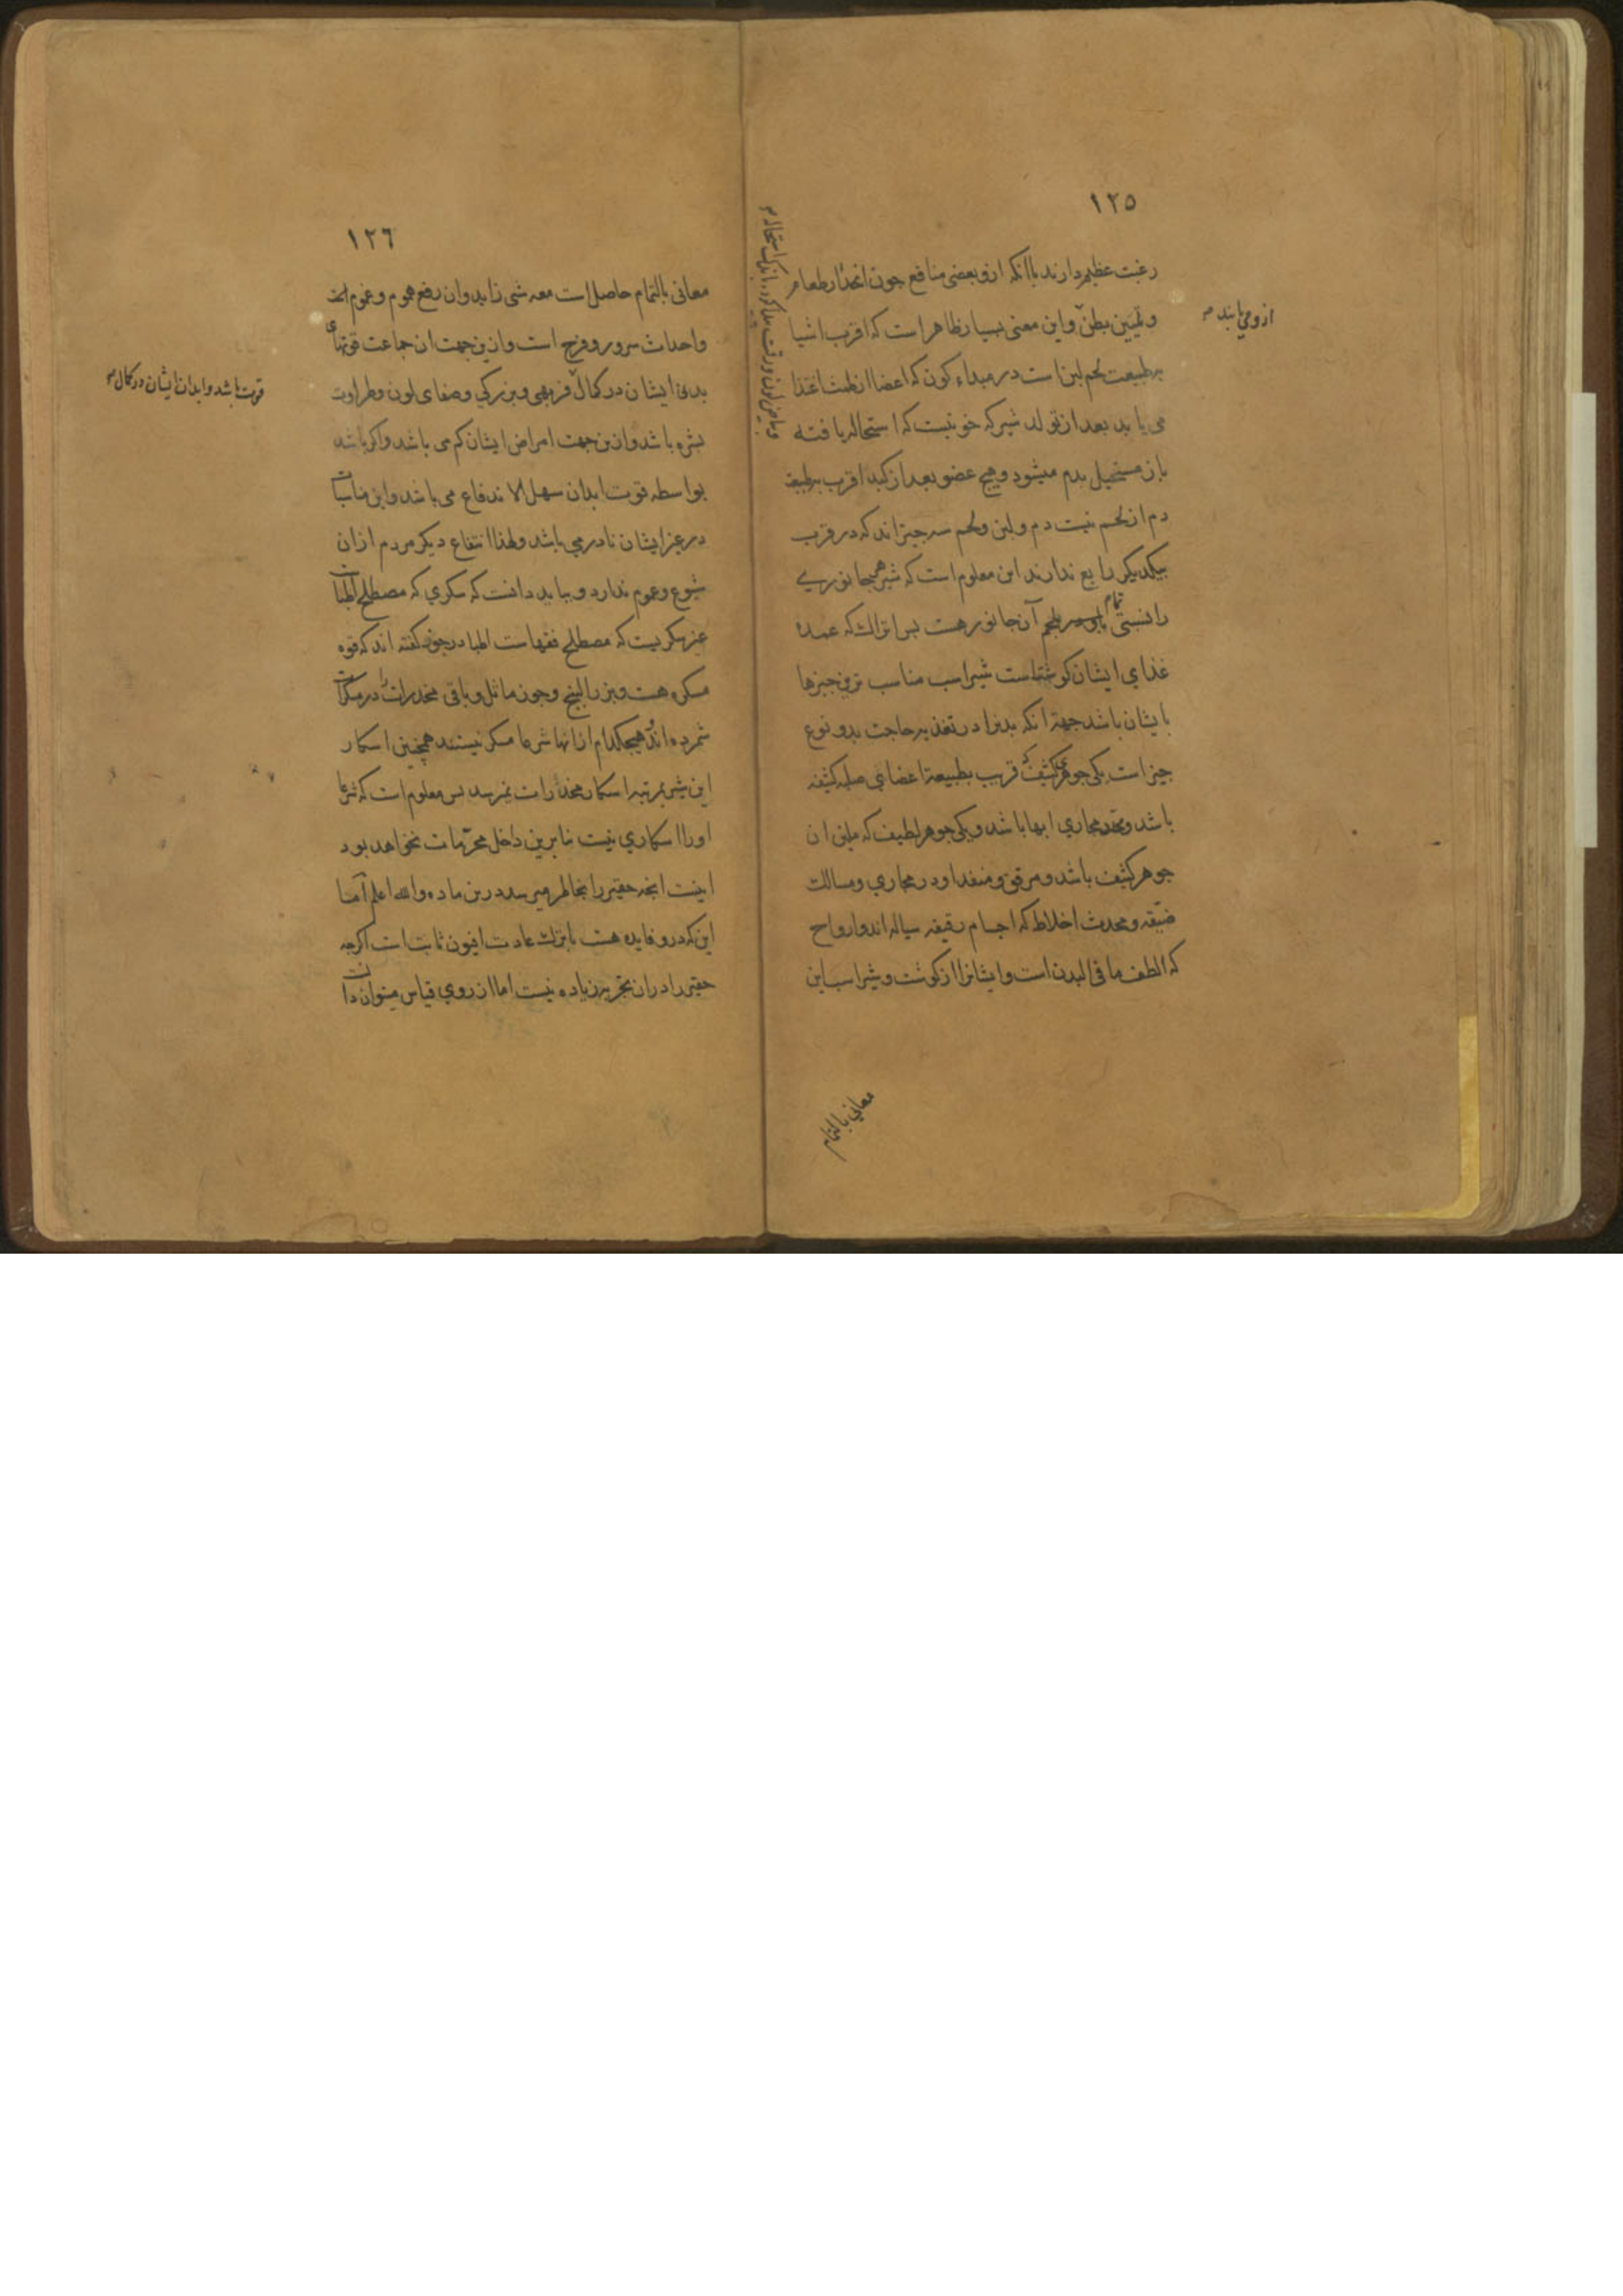 ١٢٥
رغبت عظیم دارند باآنکه ازو بعضی منافع جون انحدار طعام
و تلیین بطن واین معنی بسیار ظاهر است که اقرب اشیا
ازو می یابند
بطبیعت لحم لبن است در مبداء کون که اعضا از طمث اغذا
می یابد بعد از تولد شیر که خونیست که استحاله یافته
باز مستحیل بدم میشود وهیج عضو بعد از کبد اقرب بطبیعة
دم از لحم نیست دم ولبن ولحم سه جیز اند که در قرب
بیکدیکر رابع ندارند این معلوم است که شیر هر جانوری
را نسبتی تمام بلحم آن جانور هست بس اتراک که عمده
غذای ایشان کوشتست شیر اسب مناسب ترین جیزها
بایشان باشد جهة انکه بدنرا در تغذیه حاجت بدو نوع
جیز است یکی جوهری کثیف که قریب بطبیعة اعضای صلبه کثیفه
باشد و مجاری ابها باشد ویکی جوهر لطیف که ملین ان
جوهر کثیف باشد ومرقق ومنفذ او در مجاری ومسالک
ضیّقه ومحدث اخلاط که اجسام رقیقه سیاله اند وارواح
که الطف ما فی البدن است وایشانرا از کوشت وشیر اسب این
معانی بالتمام
١٢٦
معانی بالتمام حاصل است معه شی زاید وان رفع هموم وغموم است
واحداث سرور وفرح است وازین جهت ان جماعت قوتهای
بدنی ایشان در کمال فربهی وبزرکی وصفای لون وطراوت
قوت باشد وابدان ایشان در کمال
بشره باشد وازین جهت امراض ایشان کم می باشد واکر باشد
بواسطه قوت ابدان سهل الاندفاع می باشد واین مناسبات
در غیر ایشان نادر می باشد ولهذا انتفاع دیکر مردم ازان
شیوع وعموم ندارد وبباید دانست که سکری که مصطلح اطبات
غیر سکریست که مصطلح فقهاست اطبا در جوز کفته اند که قوه
مسکره هست وبزر البنج وجوز ماثل وباقی مخدرات را در مسکرات
شمرده اند وهیجکدام ازانها شرعا مسکر نیستند همچنین اسکار
این شیر بمرتبه اسکار مخدرات نمیرسد بس معلوم است که شرعا
اورا اسکاری نیست بنابرین داخل محرّمات نخواهد بود
اینست انجه حقیر را بخاطر میرسد درین ماده والله اعلم اما
این که درو فایده هست تا بترک عادت افیون ثابت است اکرجه
حقیر را دران تجربه زیاده نیست اما از روی قیاس میتوان دانست